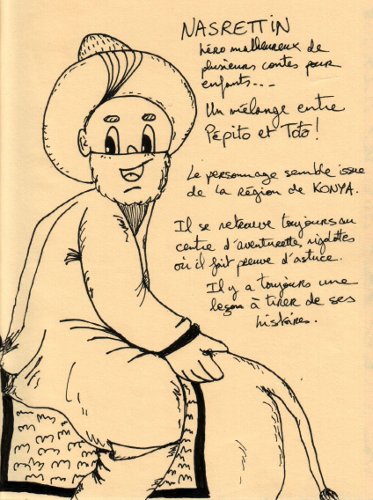 NASRETTIN
héro malheureux de
plusieurs contes pour
enfants...
Un mélange entre
Pépito et Toto !
Le personnage semble issue
de la Région de KONYA.
Il se retrouve toujours au
centre d'aventurette, rigolottes
où il fait preuve d'astuce.
Il y a toujours une
leçon à tirer de ses
histoires.